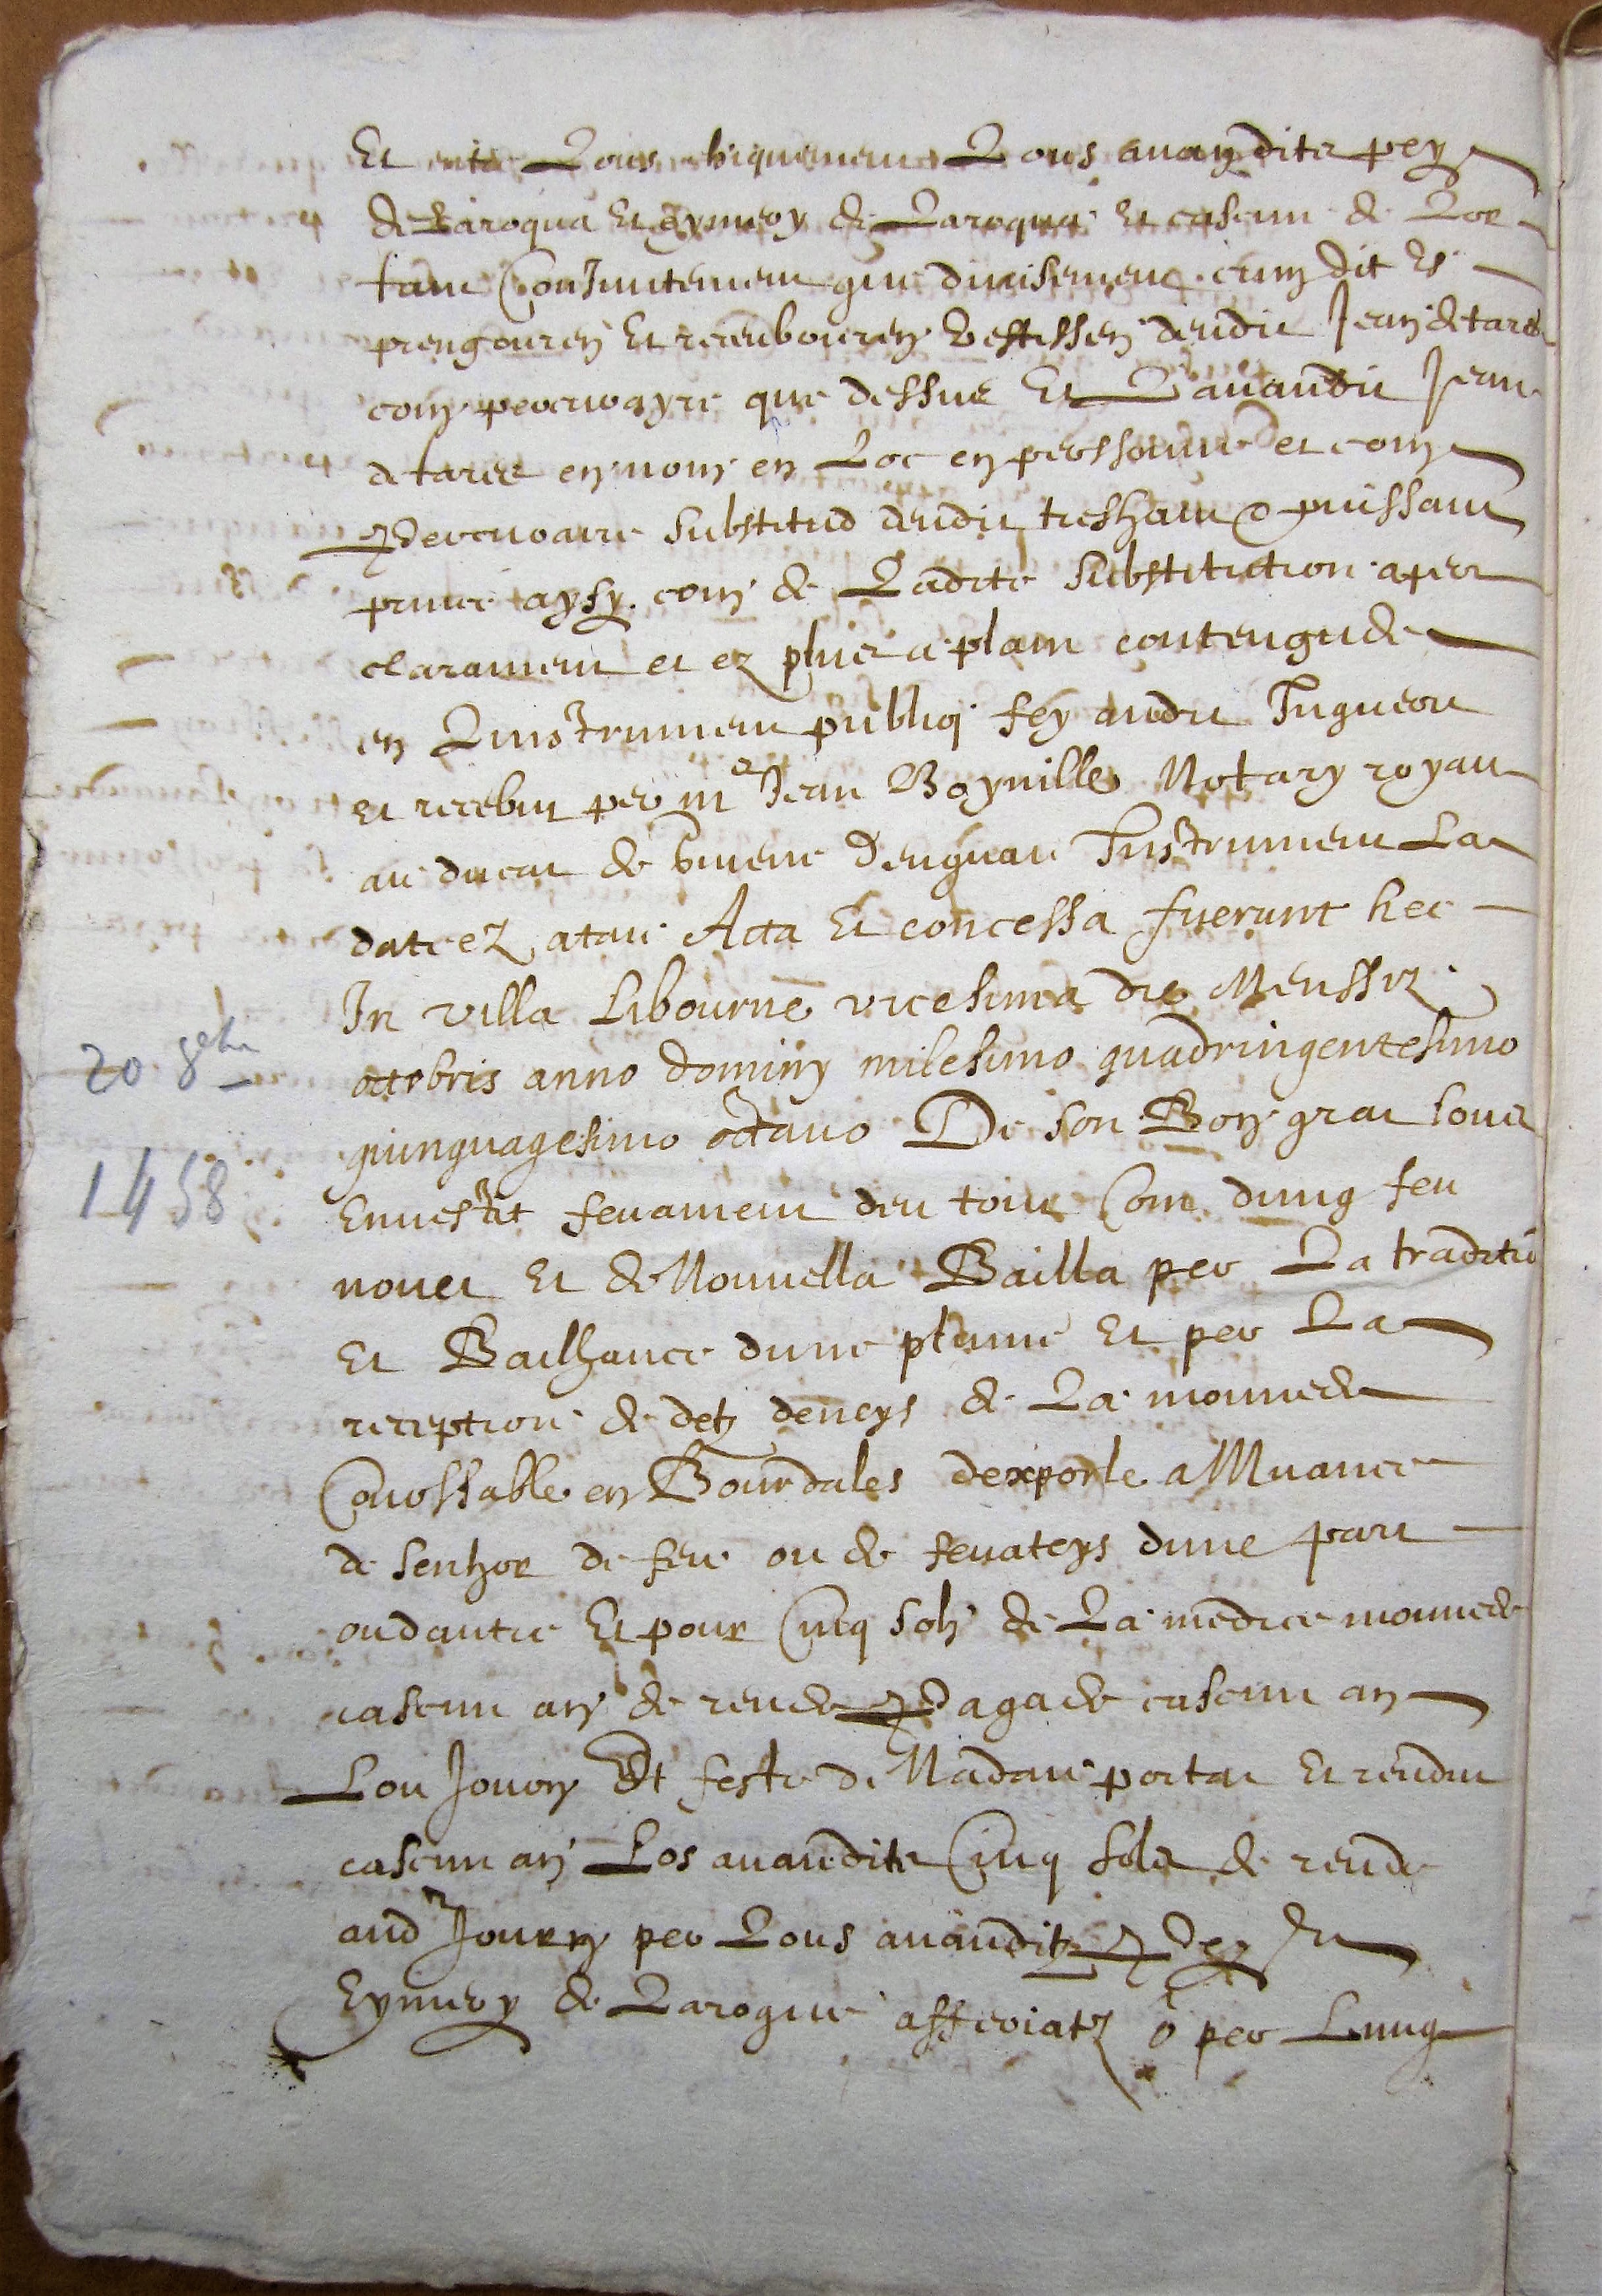 Et Lous avandits pey
de Laroqua Et Eymeroy de Laroqua Et cascun de Lor
tant Conjuntement que divisement cum dit Es
prengouren Et recebouren Vestissen deudit Jean de tares
com procuvayre que dessus Et Lavandit Jean
de tares en nom en Loc en perssonne et com
Procuvaire substitud deudit treshaut & puissant
prince aysy com de Ladite substitution aper
clarament et ez plus a plain contengude
en Linstrument publiq fey audit
et recebut per me Jean Notary royau
au ducat de Instrument La
date ez atau Acta Et concessa fuerunt hec
In villa Liburne vicesima die Menssis
octobris anno dominy milesimo quadringentesimo
quinquagesimo octavo De son Bon grat sous
20 8bre
1458
Envestit fevament deu tout Com dung feu
novet Et de Nouvella Bailla per La traditio
Et Bailhance dune plume Et per La
reception de detz deneys de La monnede
Courssable en Bourdales dexporle a Muance
de senhor de feu ou de fevateys dune part
ou dautre Et pour Cinq solz de La medice monnede
cascun an de rende Pagade cascun an
Lou Jouon Et feste de Nadau portat Et rendut
cascun an Los avandits Cinq sols de rende
aud Journ per Lous avanditz Pey Et
Eymeroy de Laroque affeviatz o per Lung